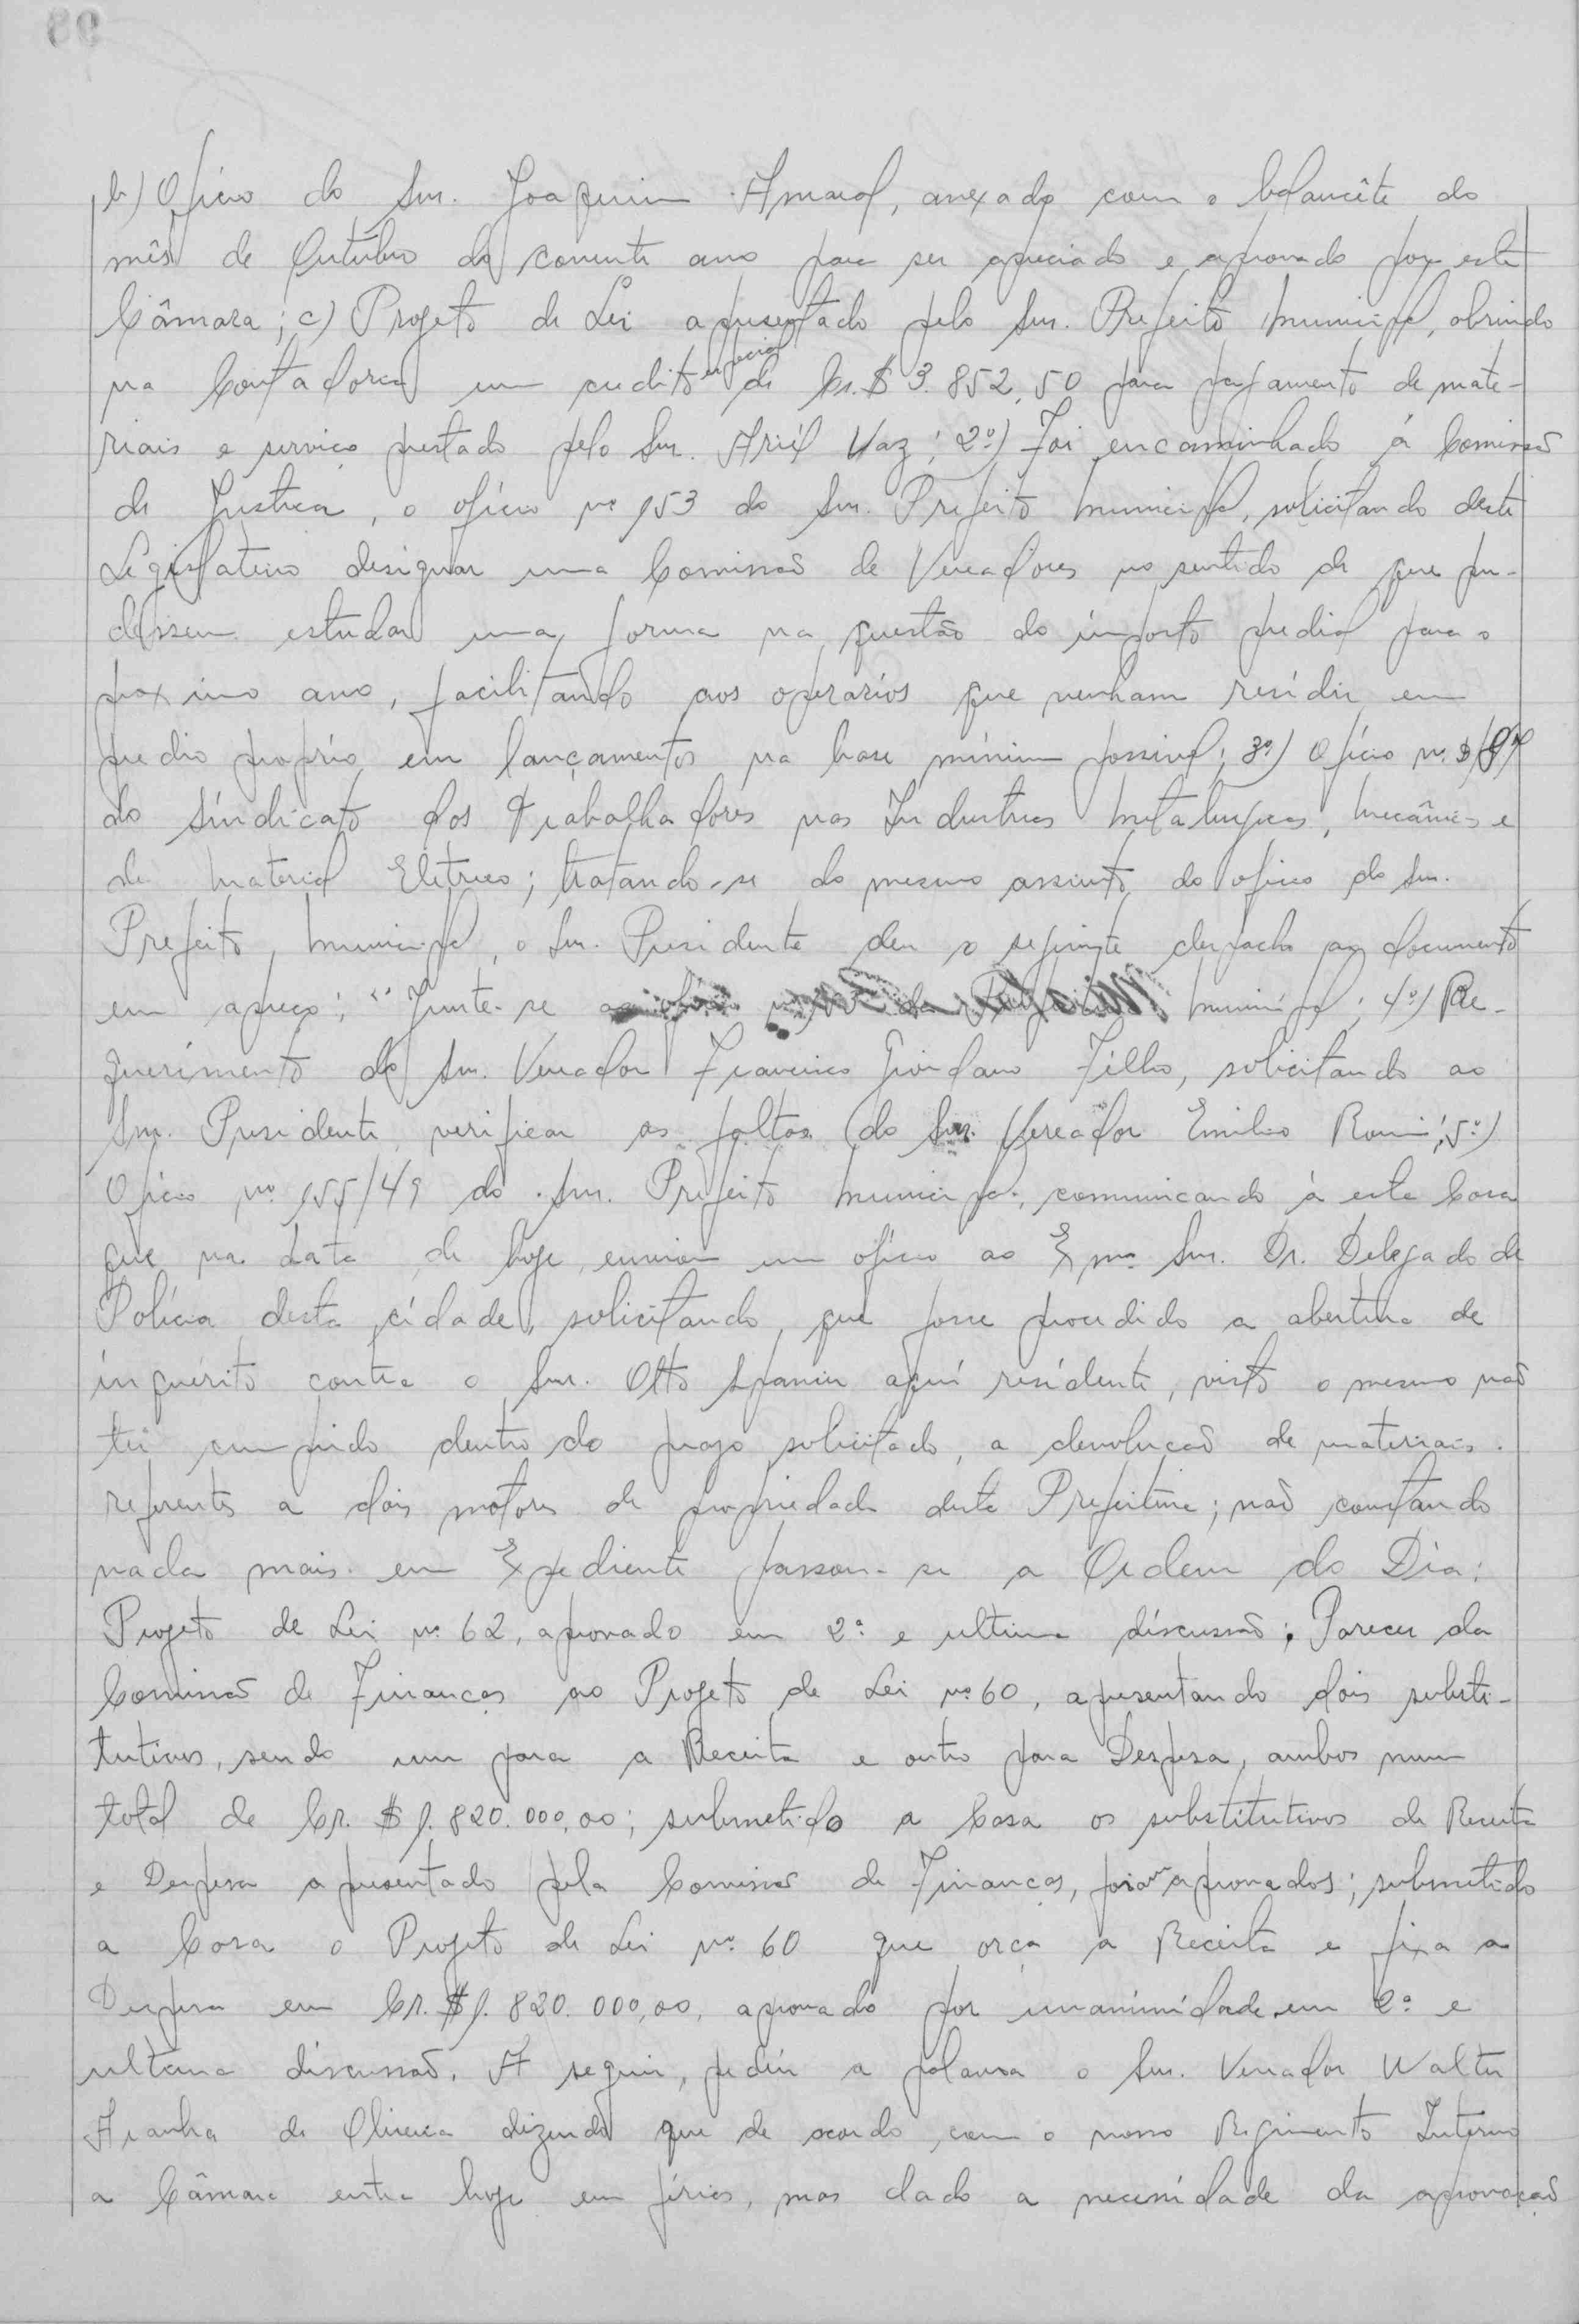 b) Oficio do Snr. Joaquim Amaral, anexado com o balancête do
mês de Outubro do corrente ano para ser apreciado e aprovado por esta
Câmara; c) Projeto de Lei apresentado pelo Snr. Prefeito Municipal, abrindo
na Contadoria um credito especial de Cr.$ 3.852,50 para pagamento de mate-
riais e serviço prestado pelo Snr. Ariél Vaz; 2º) Foi encaminhado á Comissão
de Justica, o oficio nº 153 do Snr. Prefeito Municipal, solicitando deste
Legislativo designar uma Comissão de Vereadores no sentido de que pu-
dessem estudar uma forma na questão do imposto predial para o
proximo ano, facilitando aos operarios que venham residir em
predio proprio em lançamentos na base minima possivel; 3º) Oficio nº
do Sindicato dos Trabalhadores nas Industrias Metalurgicas, Mecânicas e
de Material Eletrico; tratando-se do mesmo assunto do oficio do Snr.
Prefeito Municipal, o Snr. Presidente deu o seguinte despacho ao documento
em apreço; "Junte-se ao oficio da Prefeitura Municipal; 4º) Re-
querimento do Snr. Vereador Francisco Giordano Filho, solicitando ao
Snr. Presidente verificar as faltas do Snr. Vereador Emilio Romi; 5º)
Oficio nº 155/49 do Snr. Prefeito Municipal, comunicando á esta Casa
que na data de hoje, enviou um oficio ao Exmo. Snr. Dr. Delegado de
Policia desta cidade, solicitando, que fosse procedido a abertura de
inquérito contra o Snr. Otto Spanier aqui residente, visto o mesmo não
ter cumprido dentro do prazo solicitado, a devolucão de materiais
referentes a dois motores de propriedade desta Prefeitura; não constando
nada mais em Expediente passou-se a Ordem do Dia:
Projeto de Lei nº 62, aprovado em 2ª e ultima discussão; Parecer da
Comissão de Financas ao Projeto de Lei nº 60, apresentando dois substi-
tutivos, sendo um para a Receita e outro para Despesa, ambos num
total de Cr.$ 1.820.000,00; submetido a Casa os substitutivos de Receita
e Despesa apresentado pela Comissão de Financas, foram aprovados; submetido
a Casa o Projeto de Lei nº 60 que orça a Receita e fixa a
Despesa em Cr.$ 1.820.000,00, aprovado por unanimidade em 2ª e
ultima discussão. A seguir, pediu a palavra o Snr. Vereador Walter
Aranha de Oliveira dizendo que de acordo com o nosso Regimento Interno
a Câmara entra hoje em férias, mas dado a necessidade da aprovacão